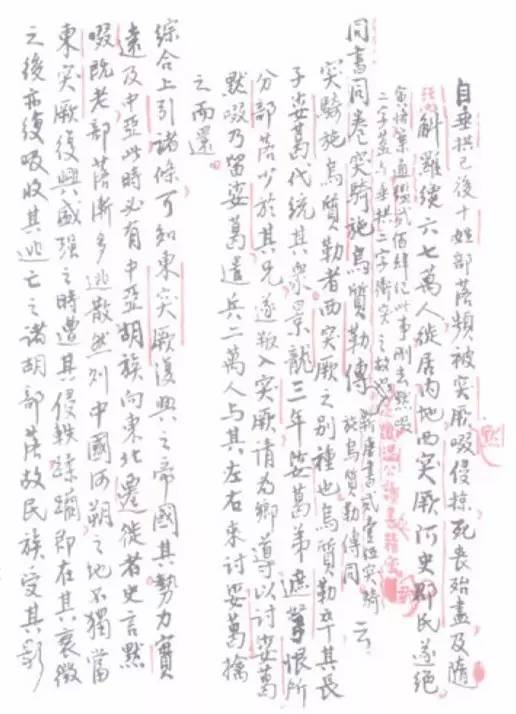 自垂拱已後十姓部落頻被突厥啜侵掠死喪殆盡及隨
默
斛羅纔六七萬人徙居内地西突厥阿史那氏遂絕
寅恪案通鑑貳佰肆紀此事刪去默啜
二字蓋與垂拱二字衝突之故也
同書同卷突騎施烏質勒傳
新唐書貳壹伍突騎
施烏質勒傳同
云
突騎施烏質勒者西突厥之別種也烏質勒卒其長
子娑葛代統其眾景龍三年娑葛弟遮弩恨所
分部落少於其兄遂叛入突厥請為鄉導以討娑葛
默啜乃留娑葛遣兵二萬人與其左右來討娑葛擒
之而還
綜合上引諸條可知東突厥復興之帝國其勢力實
遠及中亞此時必有中亞胡族向東北遷徙者史言默
啜既老部落漸多逃散然則中國河朔之地不獨當
東突厥復興盛强之時遭其侵軼蹂躪即在其衰微
之後亦復吸收其逃亡之諸胡部落故民族受其影